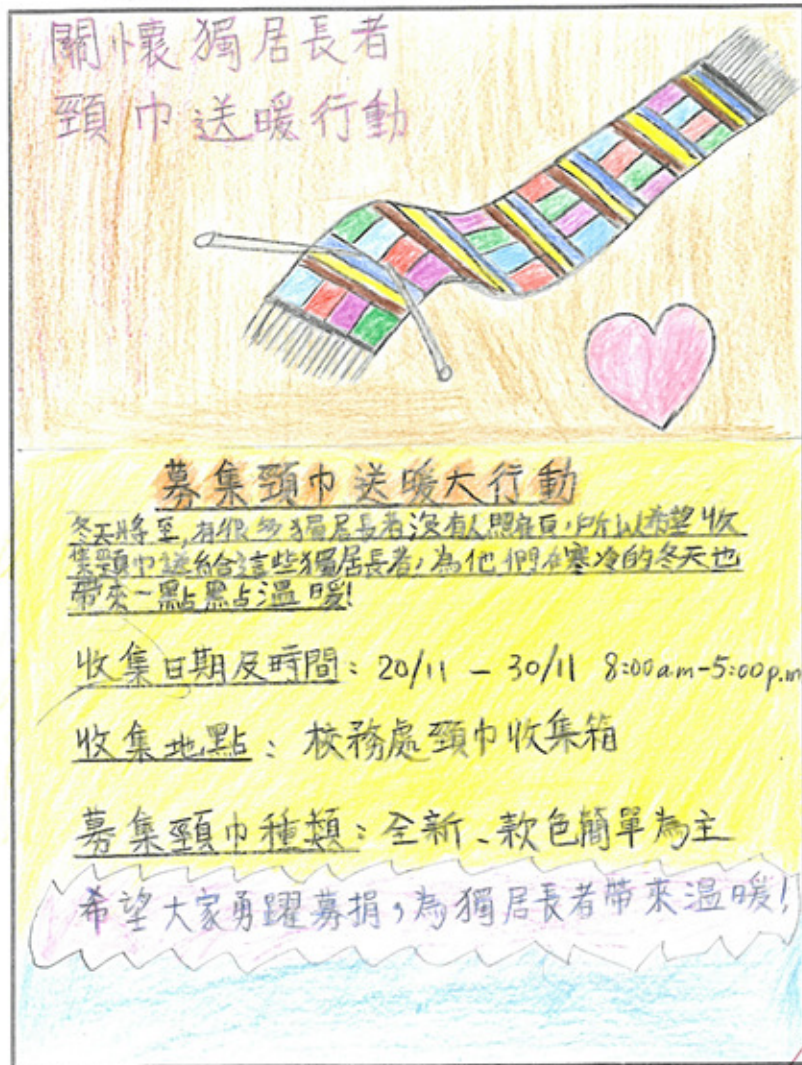 關懷獨居長者
頸巾送暖行動
募集頸巾送暖大行動
冬天將至,有很多獨居長者沒有人照顧,所以希望收
集頸巾送給這些獨居長者,為他們在寒冷的冬天也
帶來一點點溫暖!
收集日期及時間:20/11 – 30/11 8:00a.m-5:00p.m
收集地點:校務處頸巾收集箱
募集頸巾種類:全新、款色簡單為主
希望大家勇躍募捐,為獨居長者帶來溫暖!